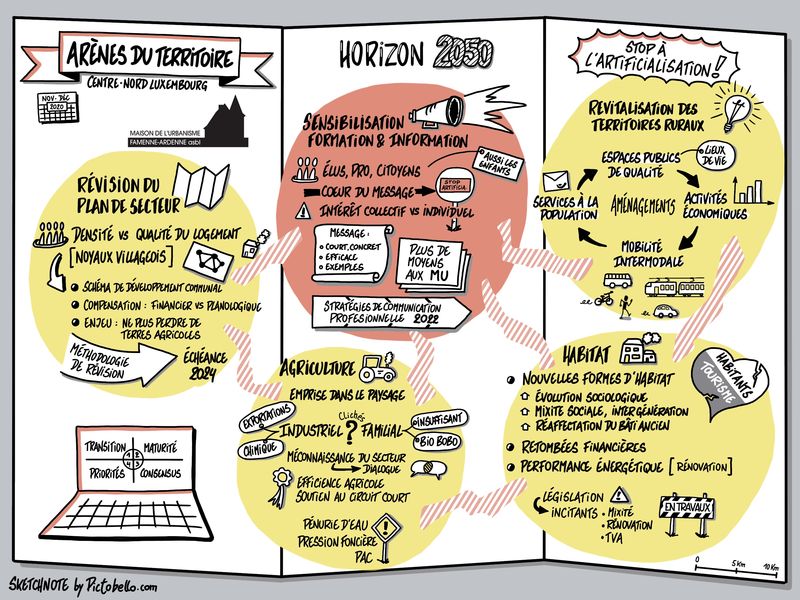 ARÈNES DU TERRITOIRE
CENTRE-NORD LUXEMBOURG
NOV-DÉC
2020
MAISON DE L'URBANISME
FAMENNE-ARDENNE asbl
RÉVISION DU
PLAN DE SECTEUR
DENSITÉ VS QUALITÉ DU LOGEMENT
[NOYAUX VILLAGEOIS]
SCHÉMA DE DÉVELOPPEMENT COMMUNAL
COMPENSATION : FINANCIER VS PLANOLOGIQUE
ENJEU : NE PLUS PERDRE DE
TERRES AGRICOLES
MÉTHODOLOGIE
DE RÉVISION
ÉCHÉANCE
2024
TRANSITION
MATURITÉ
1 2
4 3
PRIORITÉS
CONSENSUS
SKETCHNOTE by Pictobello.com
HORIZON 2050
SENSIBILISATION
FORMATION & INFORMATION
AUSSI LES
ENFANTS
ÉLUS, PRO, CITOYENS
COEUR DU MESSAGE
STOP
ARTIFICIAL.
INTÉRÊT COLLECTIF VS INDIVIDUEL
MESSAGE :
COURT, CONCRET
EFFICACE
EXEMPLES
PLUS DE
MOYENS
AUX MU
STRATÉGIES DE COMMUNICATION
PROFESSIONNELLE 2022
AGRICULTURE
EMPRISE DANS LE PAYSAGE
EXPORTATIONS
CHIMIQUE
Clichés
INDUSTRIEL ? FAMILIAL
INSUFFISANT
BIO BOBO
MÉCONNAISSANCE DU SECTEUR
DIALOGUE
EFFICIENCE AGRICOLE
SOUTIEN AU CIRCUIT COURT
PÉNURIE D'EAU
PRESSION FONCIÈRE
PAC
STOP À
L'ARTIFICIALISATION !
REVITALISATION DES
TERRITOIRES RURAUX
ESPACES PUBLICS
DE QUALITÉ
LIEUX
DE VIE
SERVICES À LA
POPULATION
AMÉNAGEMENTS
ACTIVITÉS
ÉCONOMIQUES
MOBILITÉ
INTERMODALE
HABITAT
HABITANTS
TOURISTIE
NOUVELLES FORMES D'HABITAT
ÉVOLUTION SOCIOLOGIQUE
MIXITE SOCIALE, INTERGÉNÉRATION
RÉAFFECTATION DU BÂTI ANCIEN
RETOMBÉES FINANCIÈRES
PERFORMANCE ÉNERGÉTIQUE [RÉNOVATION]
LÉGISLATION
INCITANTS
MIXITÉ
RÉNOVATION
TVA
EN TRAVAUX
0 5 Km 10 Km